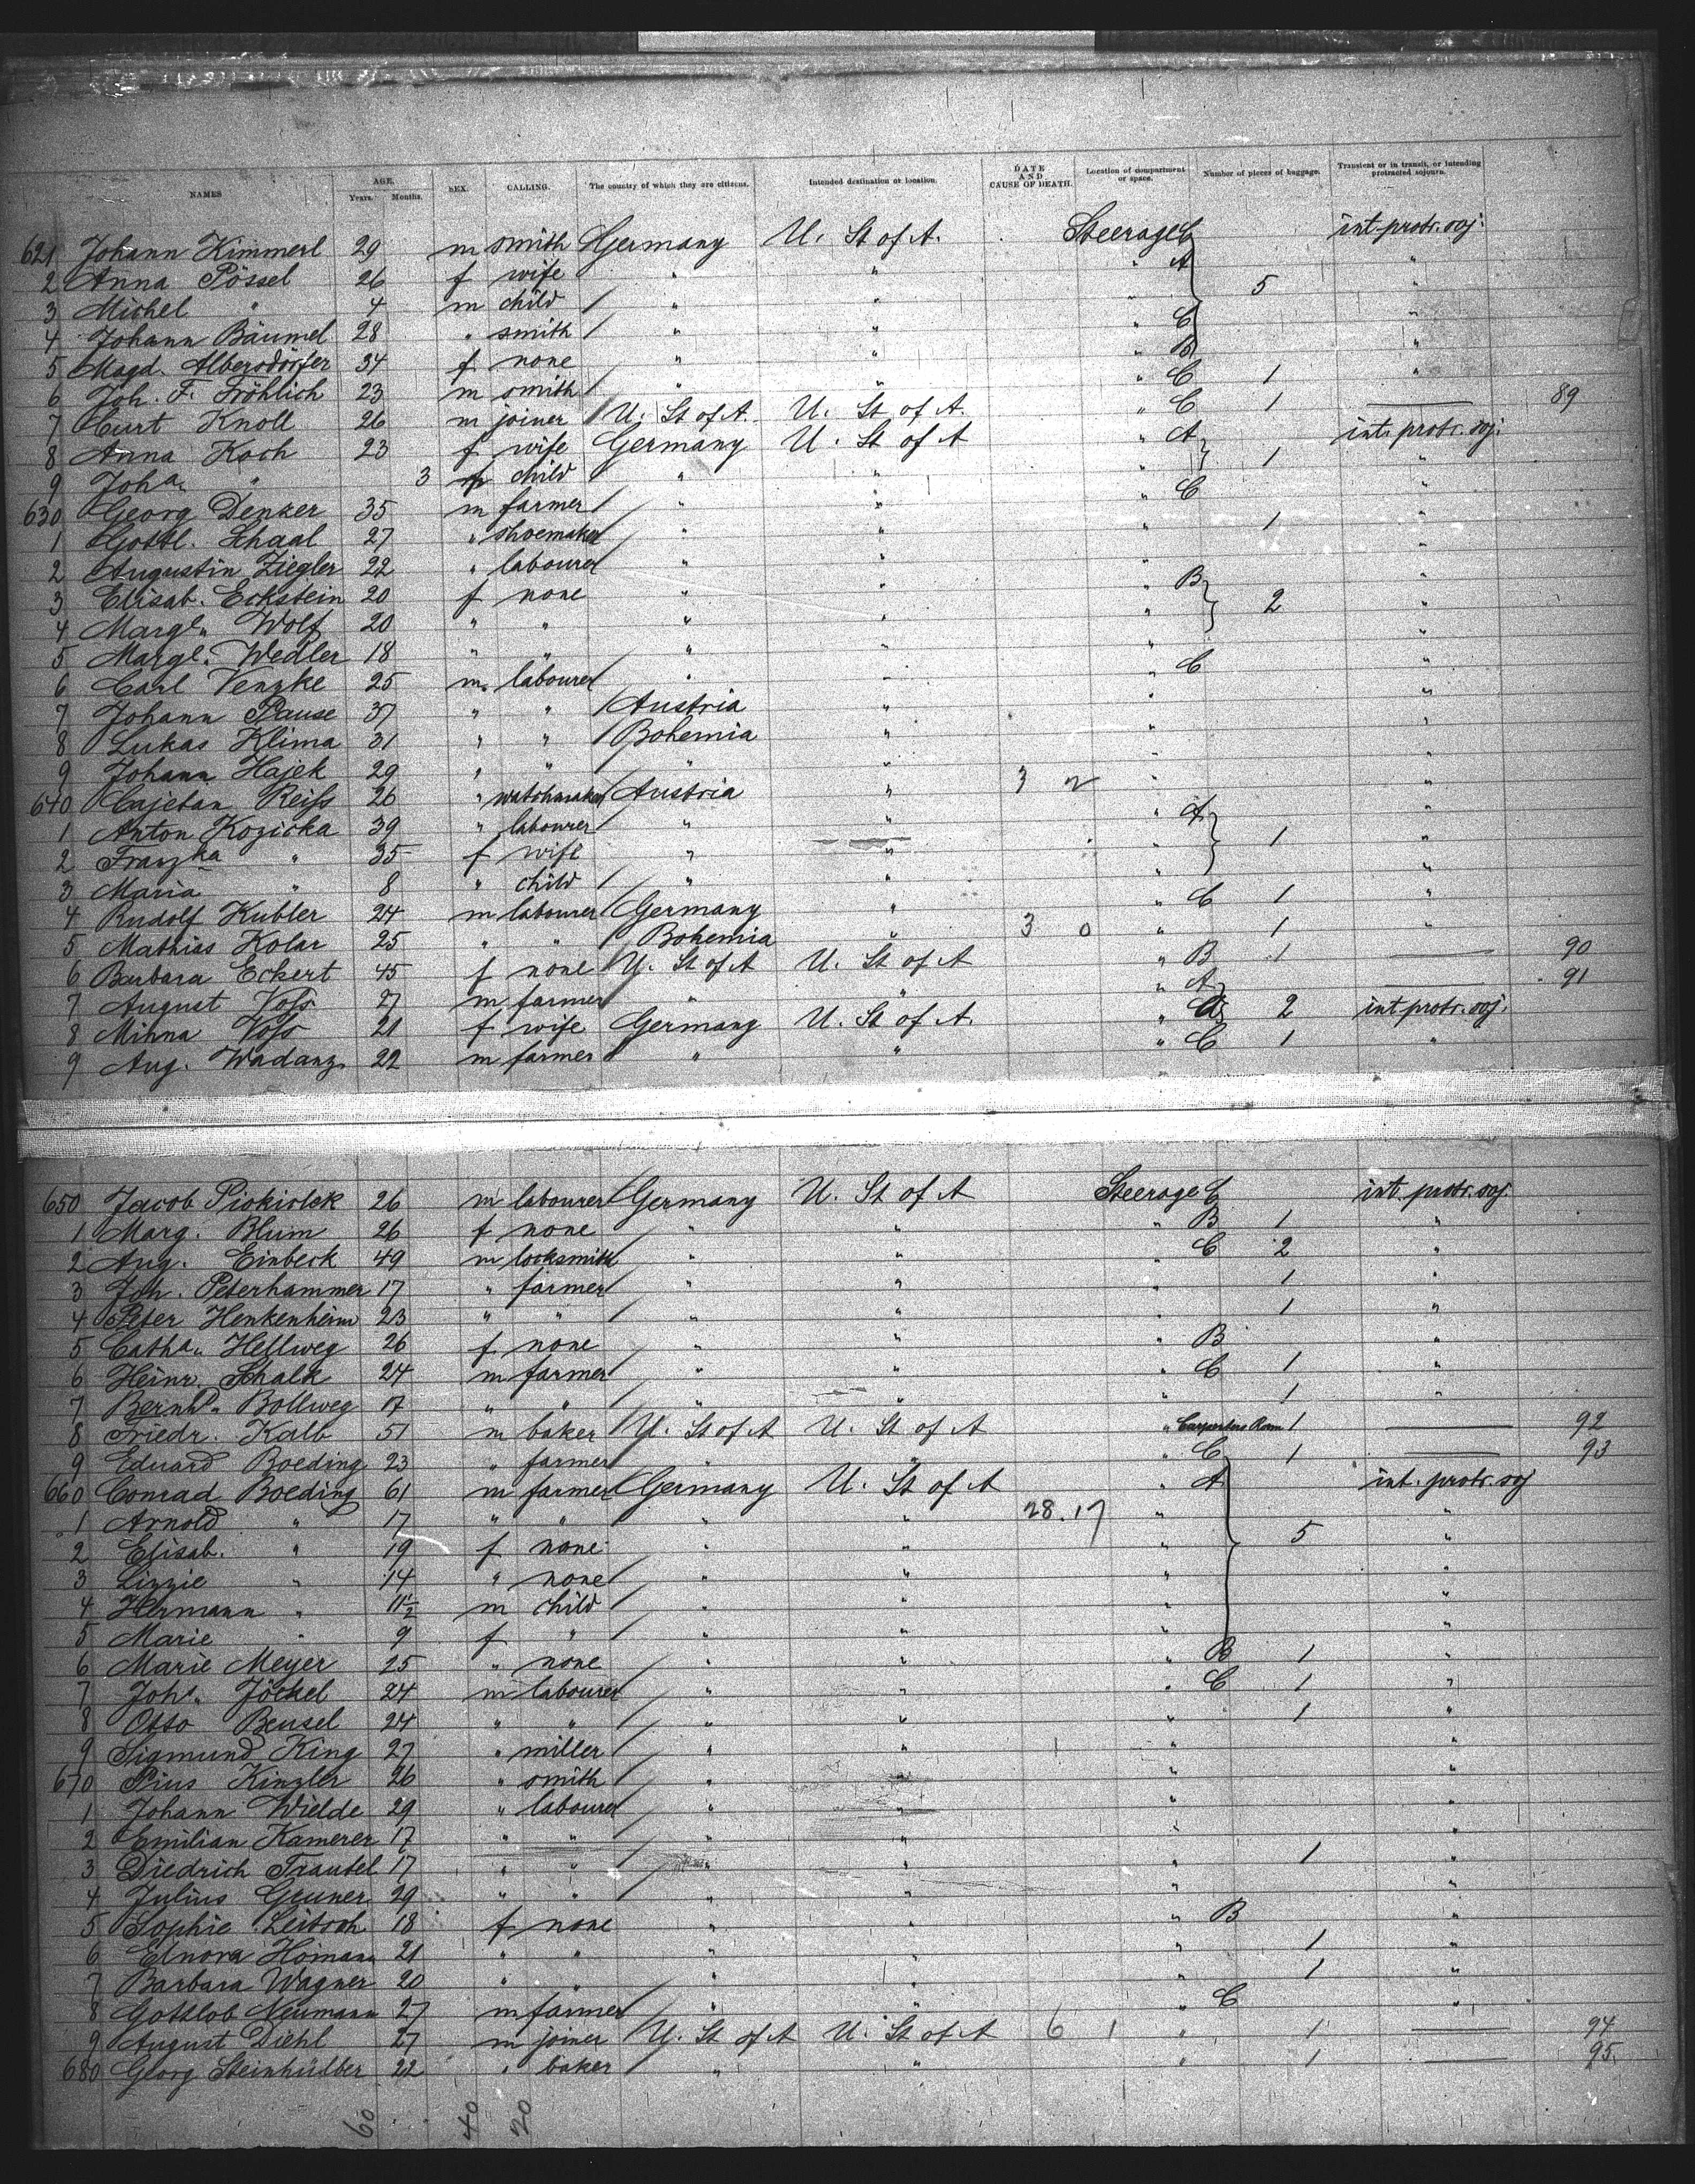 NAMES AGE. Years. Months. SEX. CALLING. The country of which they are citizens. Intended destination or location. DATE AND CAUSE OF DEATH. Location of compartment or space. Number of pieces of baggage. Transient or in transit, or intending protracted sojourn.
621 Johann Kimmerl 29 m smith Germany U. St of A. Steerage C int. protr. soj.
2 Anna Pössel 26 f wife " " " A "
3 Michel " 4 m child " " " 5 "
4 Johann Bäumel 28 " smith " " " C "
5 Magd. Albersdörfer 34 f none " " " B "
6 Joh. F. Fröhlich 23 m smith " " " C 1 "
7 Curt Knoll 26 m joiner U. St of A. U. St of A. " C 1 — 89
8 Anna Koch 23 f wife Germany U. St of A " A int. protr. soj.
9 Joha. " 3 child " " " 1 "
630 Georg Denker 35 m farmer " " " C "
1 Gottl. Schaal 27 " shoemaker " " " 1 "
2 Augustin Ziegler 22 " labourer " " "
3 Elisab. Eckstein 20 f none " " " B "
4 Margt. Wolf 20 " " " " " 2 "
5 Margt. Wedler 18 " " " " " "
6 Carl Venzke 25 m. labourer " " " C "
7 Johann Pause 37 " " Austria " " "
8 Lukas Klima 31 " " Bohemia " " "
9 Johann Hajek 29 " " " " 3 2 " "
640 Cajetan Reiss 26 " watchmaker Austria " " "
1 Anton Kozicka 39 " labourer " " " A "
2 Franzka " 35 f wife " " " 1 "
3 Maria " 8 " child " " " "
4 Rudolf Kubler 24 m labourer Germany " " C 1 "
5 Mathias Kolar 25 " " Bohemia " 3 0 " 1 "
6 Barbara Eckert 45 f none U. St of A U. St of A " B 1 — 90
7 August Voss 27 m farmer " " " A — 91
8 Minna Voss 21 f wife Germany U. St of A. " 2 int. protr. soj.
9 Aug. Wadanz 22 m farmer " " " C 1 "
650 Jacob Piokiolek 26 m labourer Germany U. St of A Steerage C int. protr. soj.
1 Marg. Blum 26 f none " " " B 1 "
2 Aug. Einbeck 49 m locksmith " " " C 2 "
3 Joh. Peterhammer 17 " farmer " " " 1 "
4 Peter Henkenheim 23 " " " " " 1 "
5 Catha. Hellweg 26 f none " " " B "
6 Heinr. Schalk 24 m farmer " " " C 1 "
7 Bernhd. Bollweg 17 " " " " " 1 "
8 Friedr. Kalb 51 m baker U. St of A U. St of A " Carpenters Room 1 — 92
9 Eduard Boeding 23 " farmer " " " C 1 — 93
660 Conrad Boeding 61 m farmer Germany U. St of A " A int. protr. soj
1 Arnold " 17 " " " " 28.17 " "
2 Elisab. " 19 f none " " " 5 "
3 Lizzie " 14 " none " " " "
4 Hermann " 11½ m child " " " "
5 Marie " 9 f " " " " "
6 Marie Meyer 25 " none " " " B 1 "
7 Johs. Jöckel 24 m labourer " " " C 1 "
8 Otto Beusel 24 " " " " " 1 "
9 Sigmund King 27 " miller " " " "
670 Pius Kinzler 26 " smith " " " "
1 Johann Wielde 29 " labourer " " " "
2 Emilian Kamerer 17 " " " " " "
3 Diedrich Trautel 17 " " " " " 1 "
4 Julius Gruner 29 " " " " " "
5 Sophie Leitsch 18 f none " " " B "
6 Elnora Homann 21 " " " " " 1 "
7 Barbara Wagner 20 " " " " " 1 "
8 Gottlob Neumann 27 m farmer " " " C "
9 August Diehl 27 m joiner U. St of A U. St of A 6 1 " 1 — 94
680 Georg Steinhülber 22 " baker " " " 1 — 95.
60 40 20